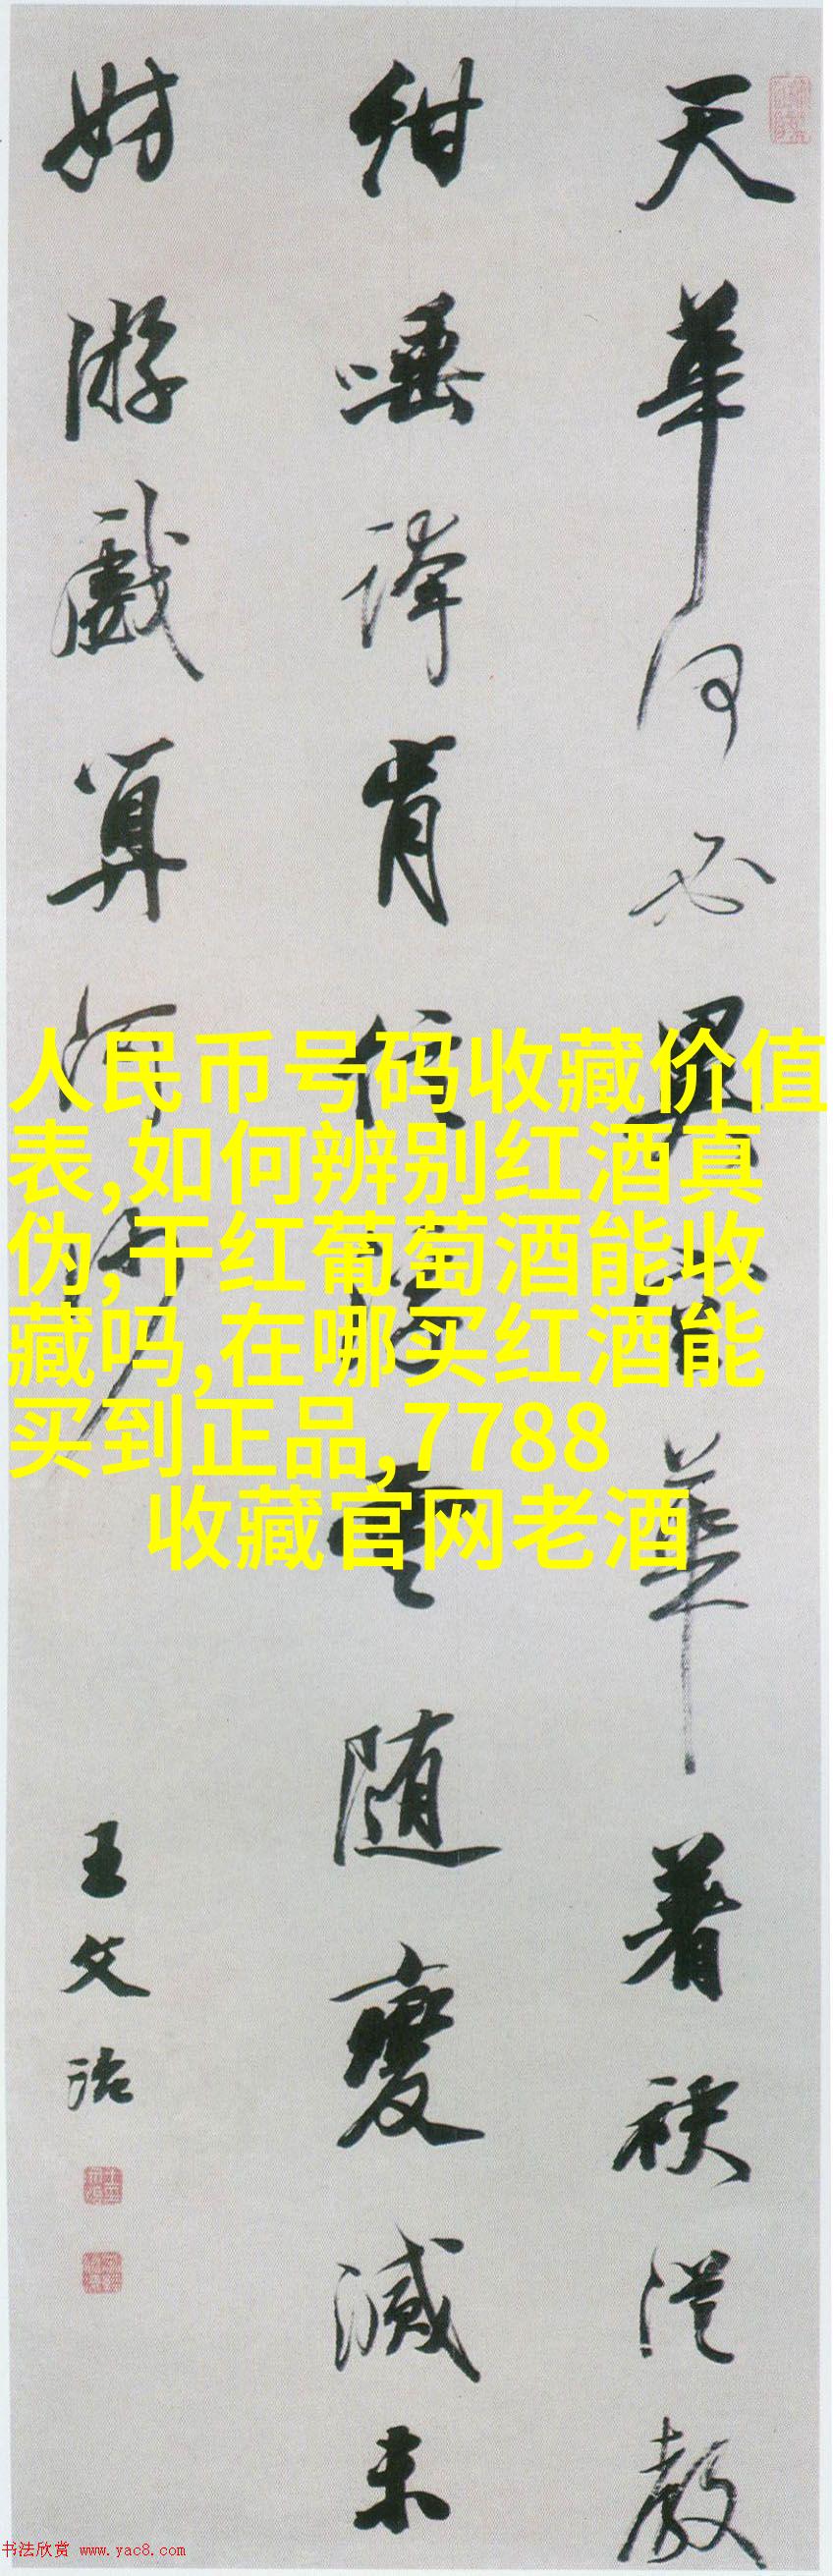 天華何必異華著袂從教
紺唾肯住雲隨變滅未
妨游戲算河沙
王文治
人民币号码收藏价值
表,如何辨别红酒真
伪,干红葡萄酒能收
藏吗,在哪买红酒能
买到正品,7788
收藏官网老酒
书法欣赏 www.yac8.com